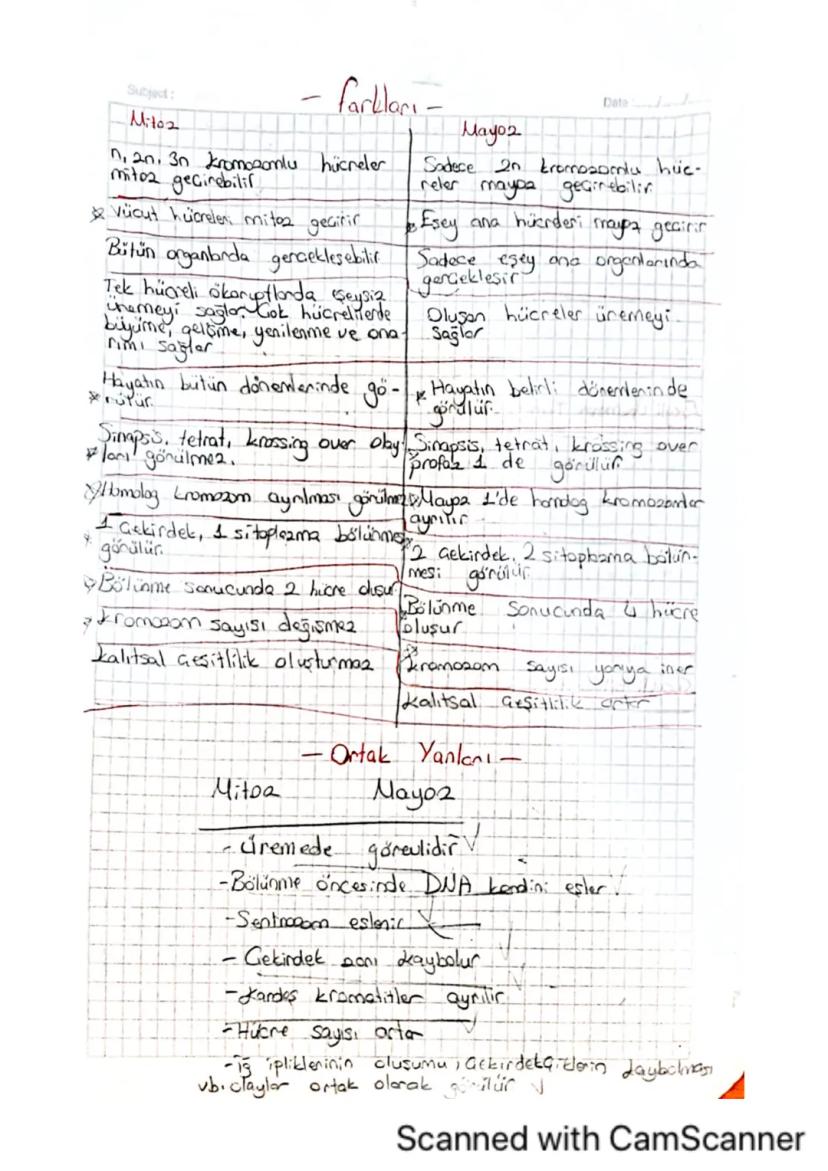 Subject:
Date:
- farkları -
Mitoz
n, 2n, 3n kromozomlu hücreler
mitoz geçirebilir
Vücut hücreleri mitoz geçirir
Bütün organlarda gerçekleşebilir
Tek hücreli ökaryotlarda eşeysiz
üremeyi sağlar Çok hücrelilerde
büyüme, gelişme, yenilenme ve ona-
rımı sağlar
Hayatın bütün dönemlerinde gö-
rülür.
Sinapsis, tetrat, krossing over olay-
ları görülmez.
Homolog kromozom ayrılması görülmez
1 çekirdek, 1 sitoplazma bölünmesi
görülür.
Bölünme sonucunda 2 hücre oluşur
kromozom sayısı değişmez
kalıtsal çeşitlilik oluşturmaz
Mayoz
Sadece 2n kromozomlu hüc-
reler mayoz geçirebilir.
Eşey ana hücreleri mayoz geçirir
Sadece eşey ana organlarında
gerçekleşir
Oluşan hücreler üremeyi
sağlar
Hayatın belirli dönemlerinde
görülür.
Sinapsis, tetrat, krossing over
profaz 1 de görülür
Mayoz 1'de homolog kromozomlar
ayrılır
2 çekirdek, 2 sitoplazma bölün-
mesi görülür
Bölünme sonucunda 4 hücre
oluşur
kromozom sayısı yarıya iner
kalıtsal çeşitlilik artar
- Ortak Yanları -
Mitoz Mayoz
- Üremede görevlidir
- Bölünme öncesinde DNA kendini eşler.
- Sentrozom eşlenir
- Çekirdek zarı kaybolur
- Kardeş kromatitler ayrılır
- Hücre sayısı artar
- iğ ipliklerinin oluşumu, çekirdekçiklerin kaybolması
vb. olaylar ortak olarak görülür
Scanned with CamScanner